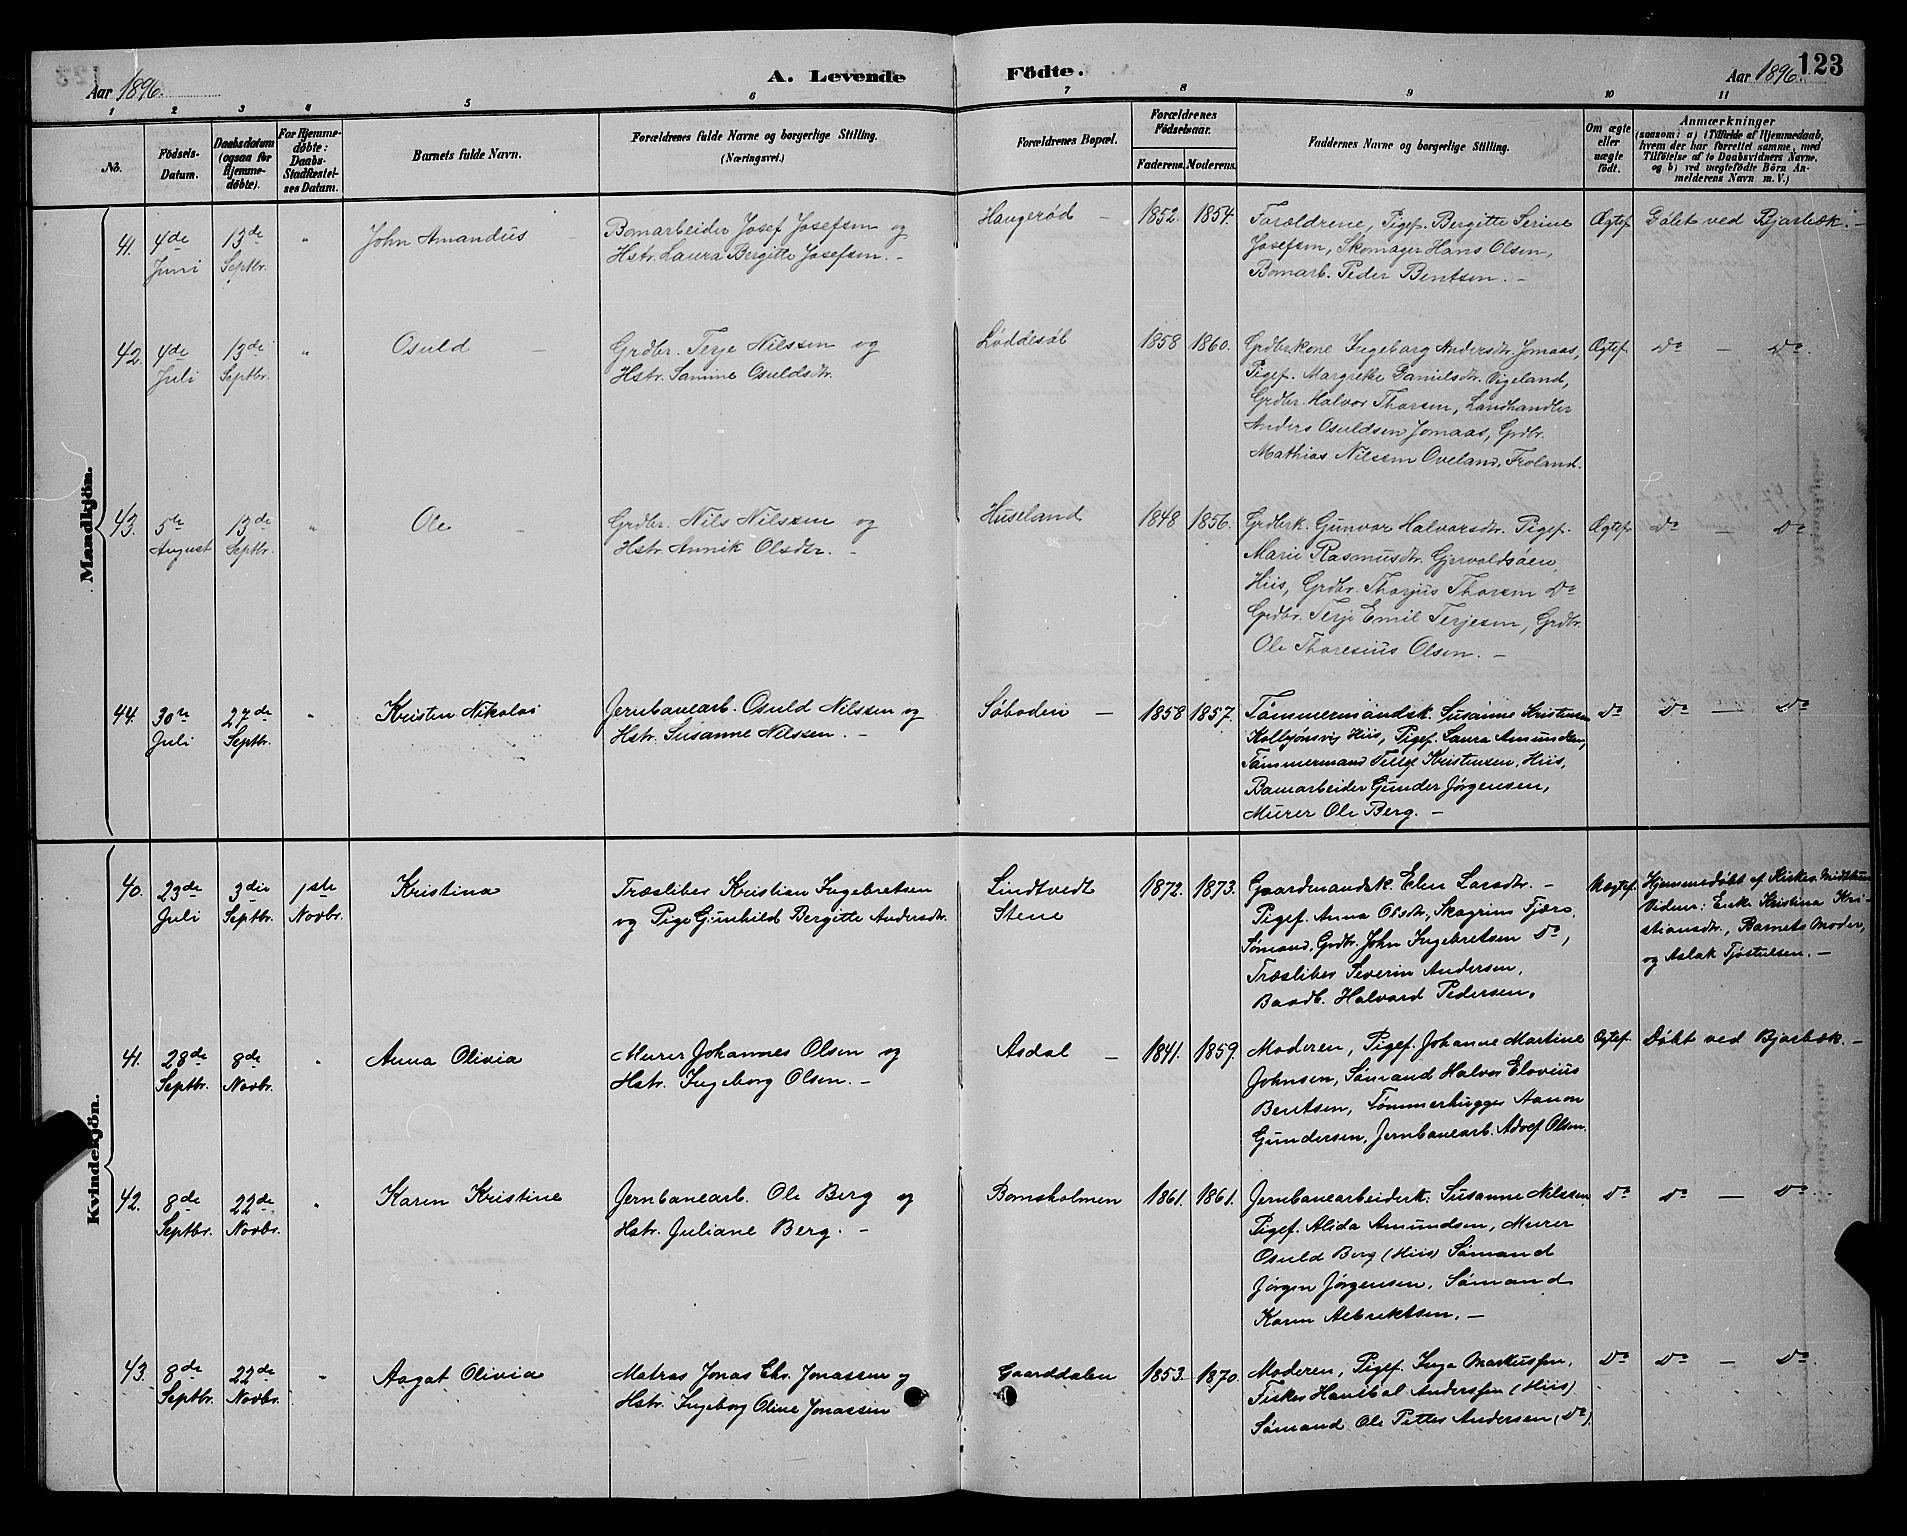 123
A. Levende Födte.
Aar 1896.
Aar 1896.
1 2 3 4 5 6 7 8 9 10 11
No.
Födsels-Datum.
Daabsdatum (ogsaa for Hjemmedöbte).
For Hjemmedöbte: Daabs-Stadfæstelses Datum.
Barnets fulde Navn.
Forældrenes fulde Navne og borgerlige Stilling.
(Næringsvei.)
Forældrenes Bopæl.
Forældrenes Fødselsaar.
Faderens. Moderens.
Faddernes Navne og borgerlige Stilling.
Om ægte eller uægte født.
Anmærkninger
(saasom: a) i Tilfælde af Hjemmedaab, hvem der har forrettet samme, med Tilföielse af to Daabsvidners Navne, og b) ved uægtefødte Börn Anmelderens Navn m. V.)
Mandkjön.
41. 4de Juni
13de Septbr.
"
John Amandus
Bomarbeider Josef Josefsen og
Hstr. Laura Bergitte Josefsen. -
Haugeröd -
1852. 1854.
Forældrene, Pigef. Bergitte Serine
Josefsen, Skomager Hans Olsen,
Bomarb. Peder Bentsen. -
Ægtef.
Døbt ved Bjorbæk. -
42. 4de Juli
13de Septbr.
"
Osuld -
Grdbr. Terje Nilssen og
Hstr. Samine Osuldsdtr.
Löddesöl
1858 1860.
Grdbrkone Ingeborg Andersdtr. Jomaas,
Pigef. Margrethe Danielsdtr. Vigeland,
Grdbr. Halvor Thorsen, Landhandler
Anders Osuldsen Jomaas, Grdbr.
Mathias Nilssen Oveland, Froland.
Ægtef.
Do - Do.
43. 5te August
13de Septbr.
"
Ole -
Grdbr. Nils Nilssen og
Hstr. Annik Olsdtr. -
Huseland
1848 1856.
Grdbrk. Gunvor Halvorsdtr. Pigef.
Marie Rasmusdtr. Gjervoldsöen,
Hiis, Grdbr. Thorjus Thorsen Do
Grdbr. Terje Emil Terjesen, Grdbr.
Ole Thoresius Olsen. -
Ægtef.
Do - Do
44. 30te Juli
27de Septbr.
"
Kristen Nikolai
Jernbanearb. Osuld Nilssen og
Hstr. Susanne Nilssen. -
Söboden -
1858 1857.
Tømmermandsk. Susanne Kristensen
Kolbjønsvig Hiis, Pigef. Laura Amundsen,
Tømmermand Tellef Kristensen, Hiis,
Bomarbeider Gunder Jørgensen,
Murer Ole Berg. -
Do
Do - Do
Kvindekjön.
40. 23de Juli
3die Septbr.
1ste Novbr.
Kristina
Træsliber Kristian Ingebretsen
og Pige Gunhild Bergitte Andersdtr.
Lindtvedt
Stene
1872. 1873.
Gaardmandsk. Elen Larsdtr. -
Pigef. Anna Olsdtr, Skagrins Tjære,
Sømand, Grdbr. John Ingebretsen Do,
Træsliber Severin Andersen,
Baadb. Halvard Pedersen.
Uægtef.
Hjemmedøbt af Kirkes.
Vidner: Enke Kristina Kri-
stiansdtr., Barnets Moder,
og Aslak Tjøstulsen. -
41. 28de Septbr.
8de Novbr.
"
Anna Olivia
Murer Johannes Olsen og
Hstr. Ingeborg Olsen. -
Asdal -
1841. 1859.
Moderen, Pigef. Johanne Martine
Johnsen, Sømand Halvor Elovius
Bentsen, Tømmerhugger Aanon
Gundersen, Jernbanearb. Adolf Olsen.
Ægtef.
Døbt ved Bjorbæk. -
42. 8de Septbr.
22de Novbr.
"
Karen Kristine
Jernbanearb. Ole Berg og
Hstr. Juliane Berg. -
Bomsholmen
1861. 1861.
Jernbanearbeiderk. Susanne Nilssen,
Pigef. Alida Amundsen, Murer
Osuld Berg (Hiis) Sømand
Jørgen Jørgensen, Sømand
Karen Albriktsen. -
Do
Do - Do
43. 8de Septbr.
22de Novbr.
"
Aagot Olivia
Matros Jonas Chr. Jonassen og
Hstr. Ingeborg Oline Jonassen
Gaarddalen
1853. 1870.
Moderen, Pigef. Inga Markussen,
Fisker Hanibal Anderssen (Hiis)
Sømand Ole Petter Andersen, (Do).
Do
Do - Do